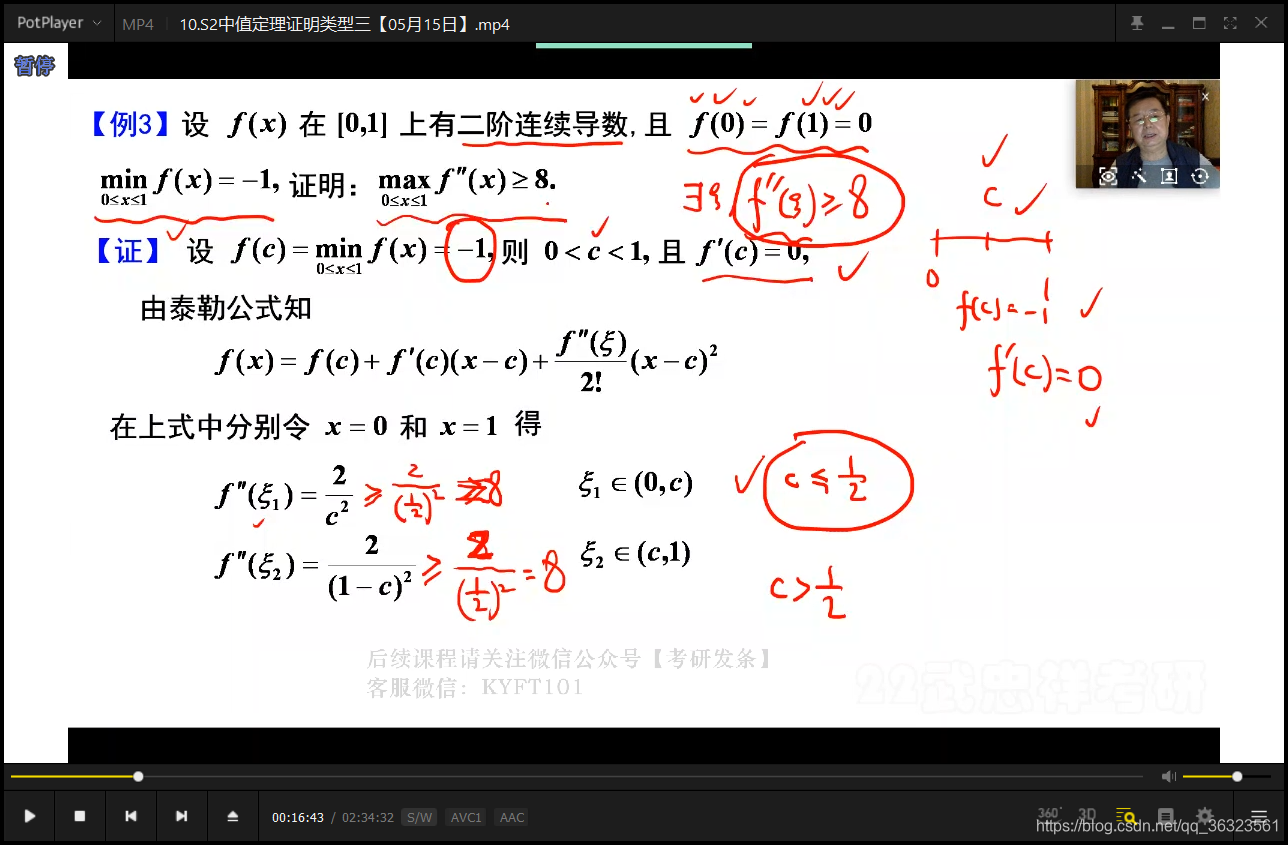 PotPlayer MP4 10.S2中值定理证明类型三【05月15日】.mp4
暂停
【例3】设 f(x) 在 [0,1] 上有二阶连续导数, 且 f(0) = f(1) = 0
min f(x) = −1, 证明: max f″(x) ≥ 8.
0≤x≤1 0≤x≤1
∃ξ, f″(ξ) ≥ 8
c
0 1
【证】 设 f(c) = min f(x) = −1, 则 0 < c < 1, 且 f′(c) = 0,
0≤x≤1
f(c) = −1
由泰勒公式知
f(x) = f(c) + f′(c)(x − c) + f″(ξ)/2! (x − c)²
f′(c) = 0
在上式中分别令 x = 0 和 x = 1 得
f″(ξ₁) = 2/c² ≥ 2/(1/2)² = 8 ξ₁ ∈ (0,c) c ≤ 1/2
f″(ξ₂) = 2/(1 − c)² ≥ 2/(1/2)² = 8 ξ₂ ∈ (c,1)
c > 1/2
后续课程请关注微信公众号【考研发条】
客服微信: KYFT101
22武忠祥考研
00:16:43 / 02:34:32 S/W AVC1 AAC
360° 3D
https://blog.csdn.net/qq_36323561